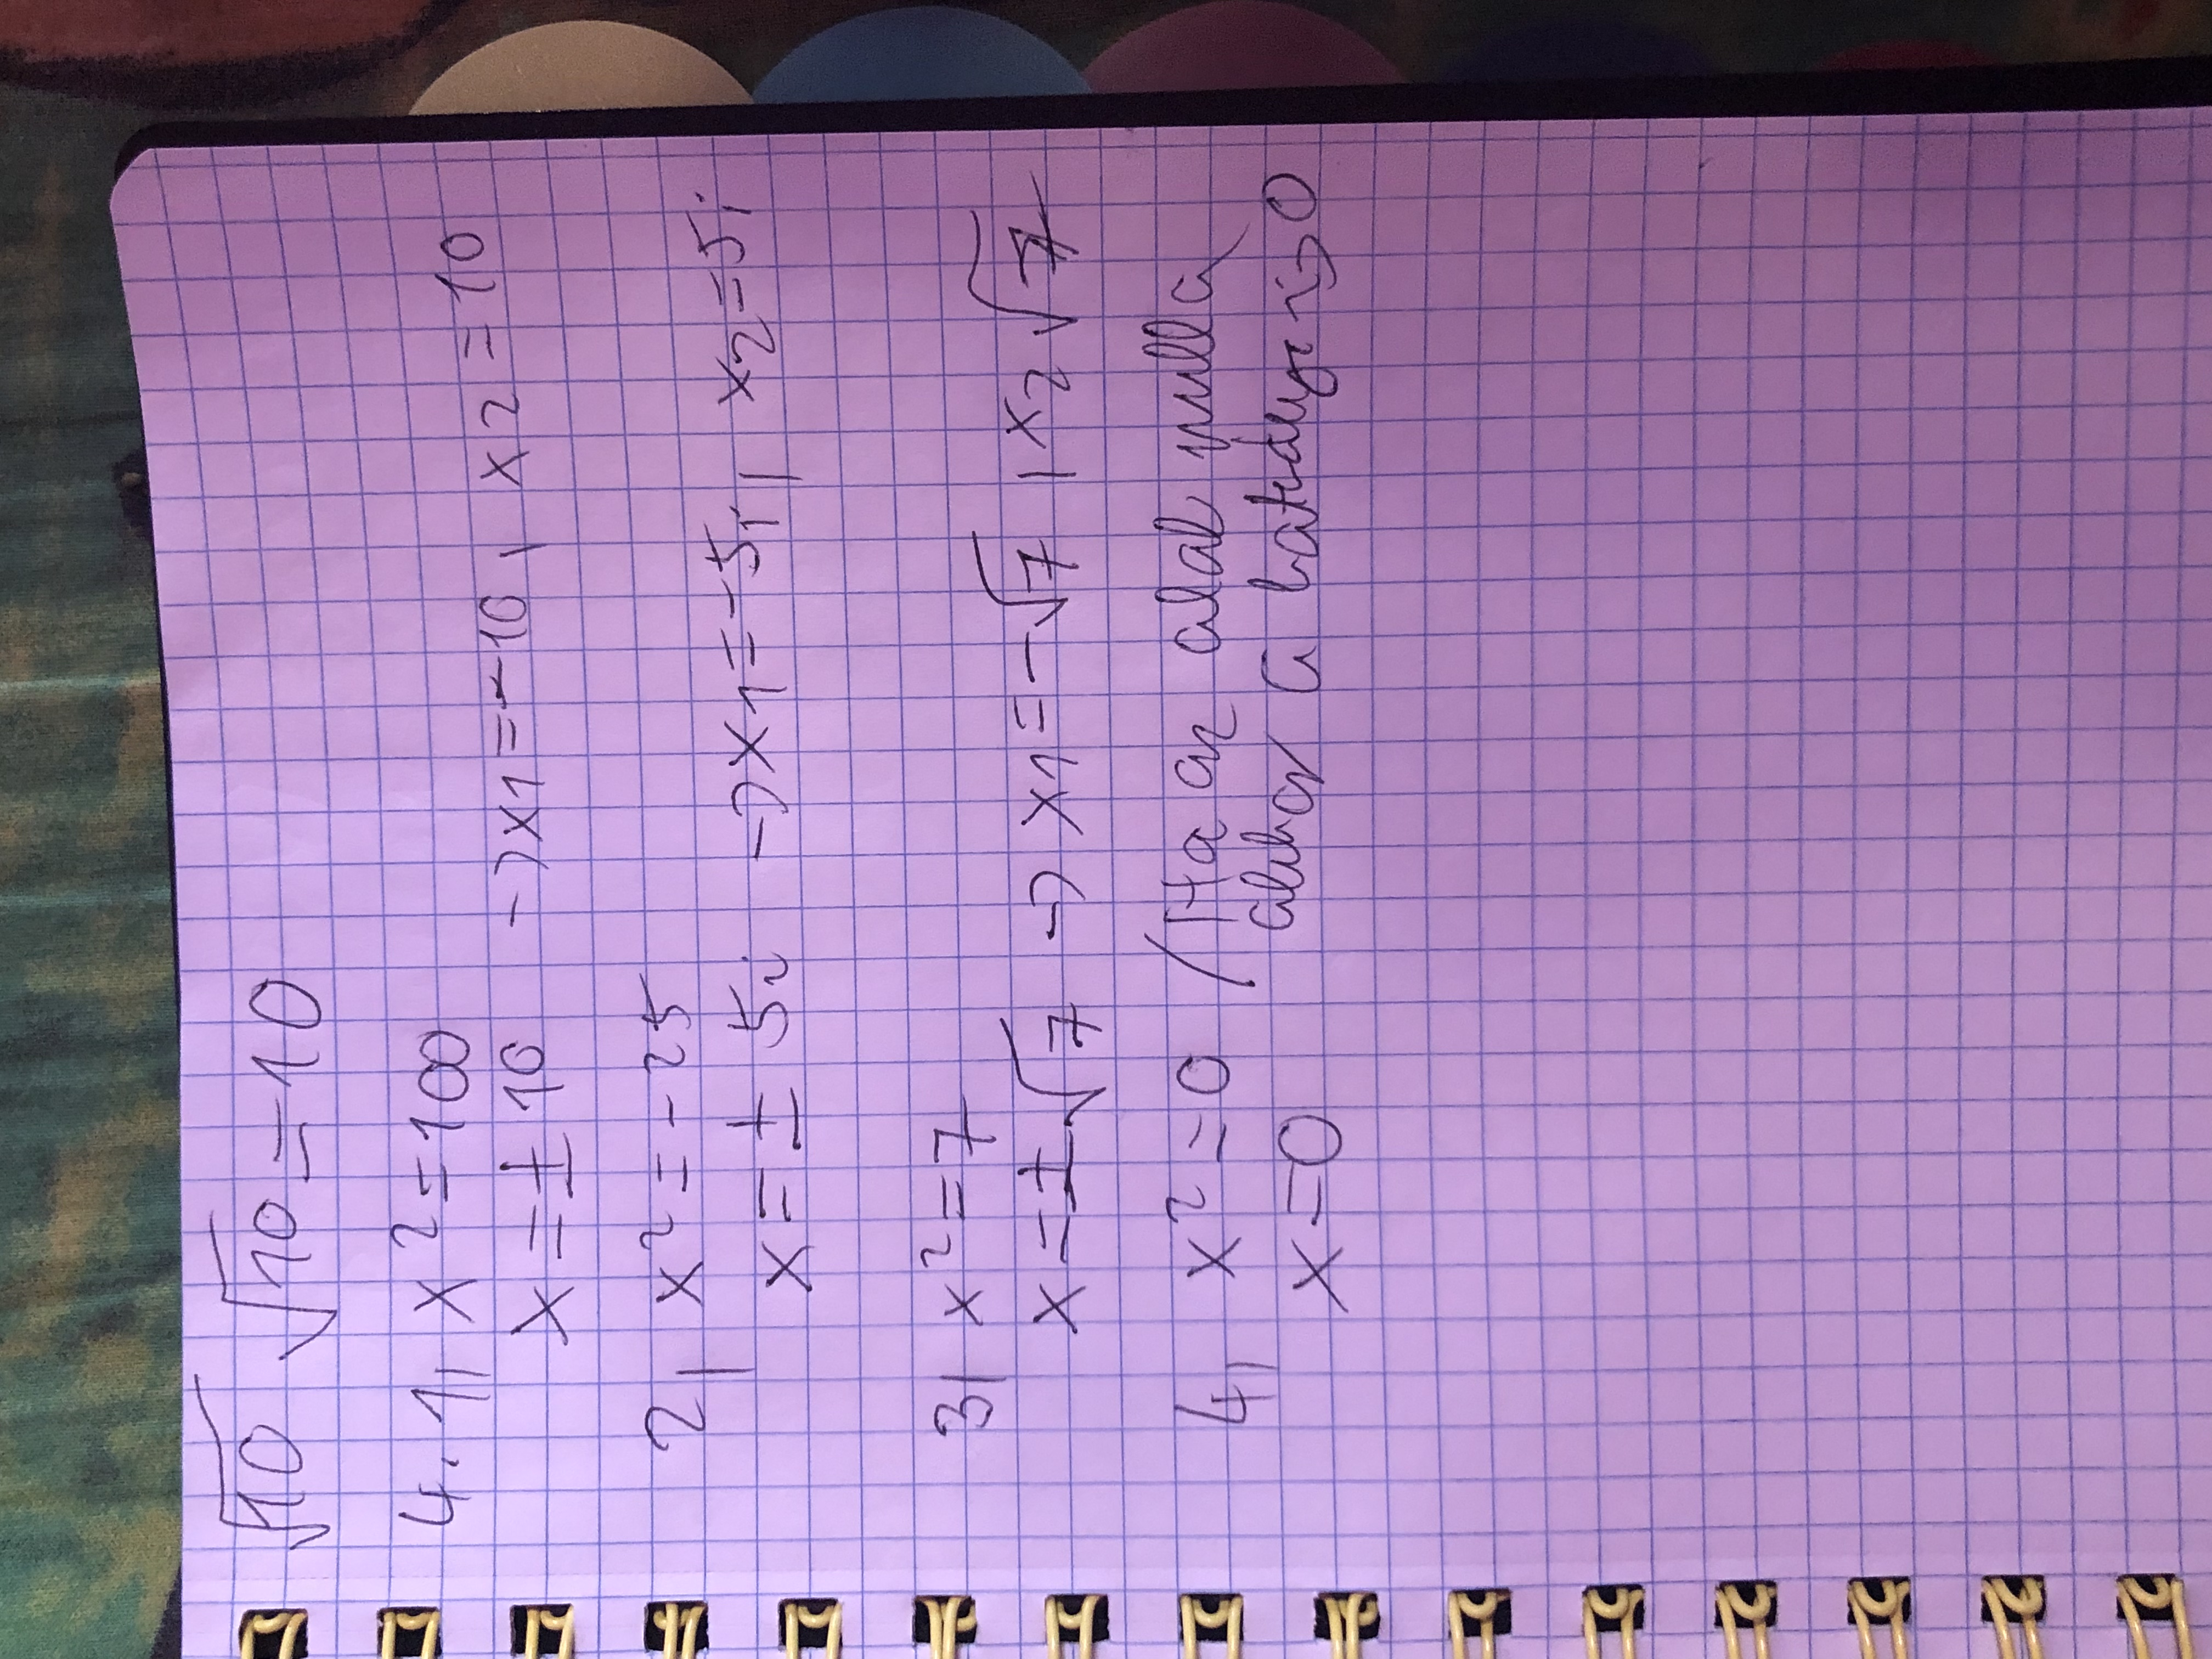 √10 √10 = 10
4. 1, x² = 100
x = ± 10 → x1 = -10, x2 = 10
2, x² = - 25
x = ± 5i → x1 = -5i, x2 = 5i
3, x² = 7
x = ± √7 → x1 = - √7, x2 √7
4, x² = 0 (Ha az alak nulla
x = 0 akkor a hatvány is 0